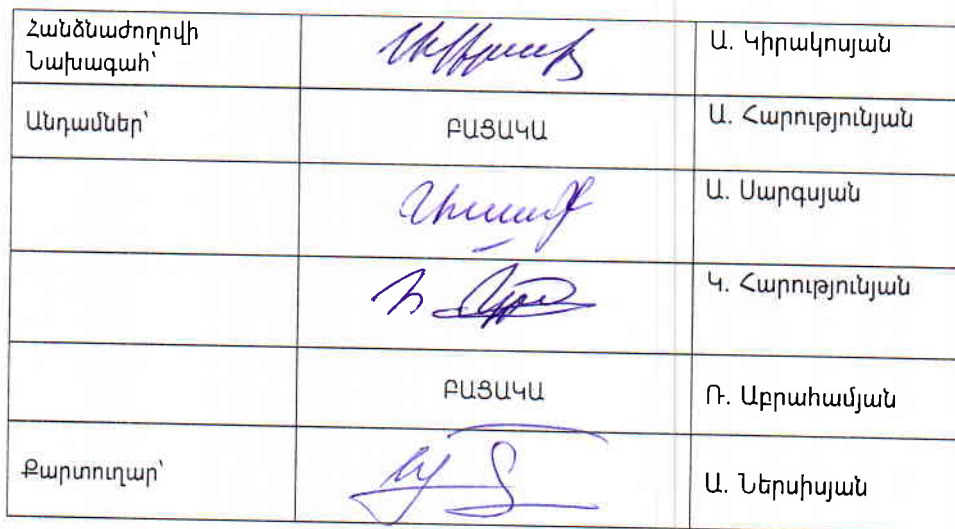 Հանձնաժողովի
Նախագահ՝
Ա. Կիրակոսյան
Անդամներ՝
ԲԱՑԱԿԱ
Ա. Հարությունյան
Ա. Սարգսյան
Կ. Հարությունյան
ԲԱՑԱԿԱ
Ռ. Աբրահամյան
Քարտուղար՝
Ա. Ներսիսյան